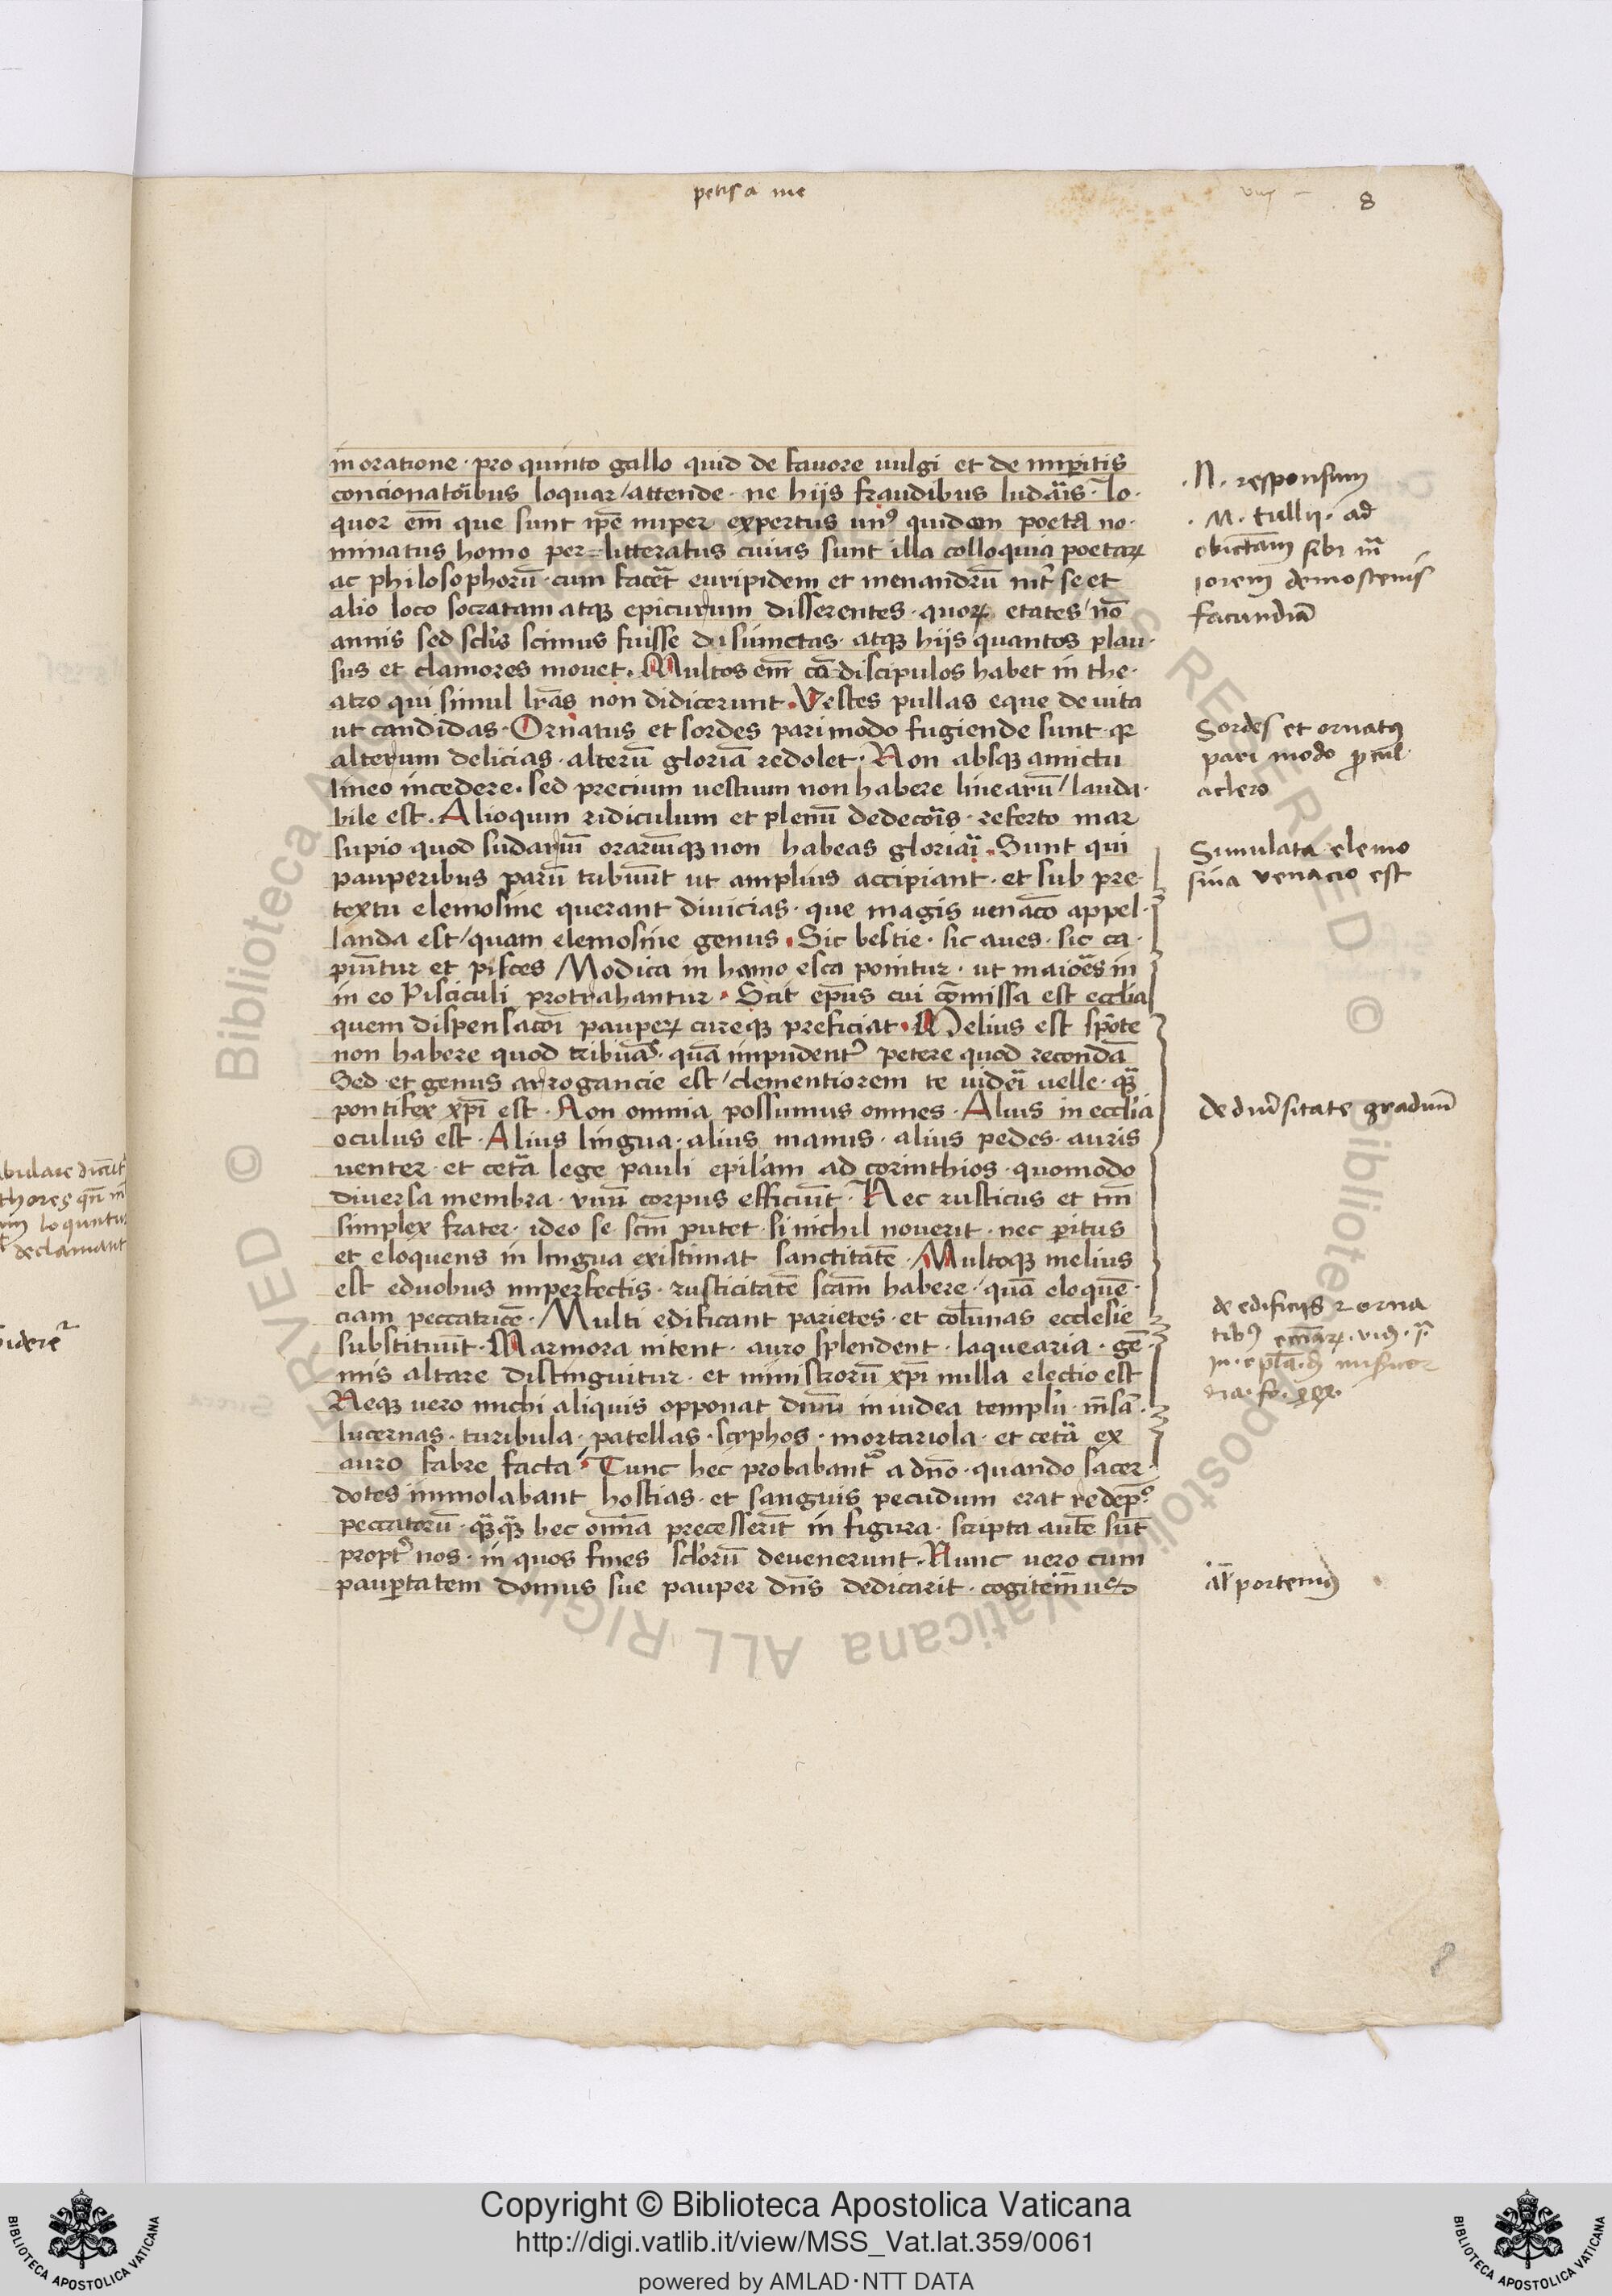 petis a me
8
in oratione · pro quinto gallo quid de fauore uulgi et de imp̲itis
concionatoribus loquar / attende · ne hijs fraudibus ludaris · lo·
quor em̄ que sunt ip̄e nuper expertus un⁹ quidam poeta no·
minatus homo per=litteratus cuius sunt illa colloquia poetaꝝ
ac philosophorū · cum facet euripidem et menandrū int̾ se et
alio loco socratam atqꝫ epicurum disserentes · quoꝝ etates / nō
annis sed sc̄lis scimus fuisse disiunctas · atqꝫ hijs quantos plau·
sus et clamores mouet · Multos em̄ cō discipulos habet in the·
atro qui simul lr̄as non didicerunt · Vestes pullas eque deuita
ut candidas · Ornatus et sordes pari modo fugiende sunt · qꝛ
alterum delicias · alterū gloriā redolet · Non absqꝫ amictu
lineo incedere · sed precium uestium non habere linearū / lauda·
bile est · Alioquin ridiculum et plenū dedecoris · referto mar
supio quod sudariū orariūqꝫ non habeas gloriari · Sunt qui
pauperibus parū tribuūt ut amplius accipiant · et sub pre·
textu elemosine querant diuicias · que magis uenaco appel·
landa est / quam elemosine genus · Sic bestie · sic aues · sic ca·
piūtur et pisces Modica in hamo esca ponitur · ut maiores in
in eo Pisciculi protrahantur · Scit ep̄us cui cōmissa est eccl̄ia
quem dispensatorī pauperꝝ cureqꝫ preficiat · Melius est spōte
non habere quod tribuas · quā impudent̾ petere quod recondā
Sed et genus arrogancie est / clementiorem te uideri uelle · qꝫ
pontifex xp̄i est · Non omnia possumus omnes · Alius in eccl̄ia
oculus est · Alius lingua · alius manus · alius pedes · auris
uenter · et cetā lege pauli epil̄am ad corinthios · quomodo
diuersa membra · vnū corpus efficiūt · Nec rusticus et tm̄
simplex frater · ideo se scm̄ putet · si nichil nouerit · nec p̲itus
et eloquens in lingua existimat sanctitatē · Multoqꝫ melius
est eduobus imperfectis · rusticitatē scām habere / quā eloquē·
ciam peccatricē · Multi edificant parietes · et colūnas ecclesie
substituūt · Marmora nitent · auro splendent · laquearia · gē·
mis altare distinguitur · et ministrorū xp̄i nulla electio est
Neqꝫ uero michi aliquis opponat diuū in iudea templū · m̄sā·
lucernas · turibula · patellas · scyphos · mortariola · et cetā ex
auro fabre facta · Tunc hec probabant̾ a dn̄o · quando sacer·
dotes immolabant hostias · et sanguis pecudum erat redēp̄o
peccatorū · qꝫqꝫ hec om̄ia precesserīt in figura · scripta autē sūt
propt̾ nos · in quos fines sc̄lorū deuenerunt · Nunc uero cum
paup̲tatem domus sue pauper dn̄s dedicarit · cogitem̄us
·N· responsum
·M· tullij · ad
obiectam sibi ma
iorem demostenis
facundiā
Sordes et ornatꝰ
pari modo procul
a clero
Simulata elemo
sina venacio est
de diu̾sitate graduū
de edificijs ⁊ orna
tibꝰ
al̄ portemꝰ
bulare dicūt
thores qn̄
loquntur
declamant
uidere
8
Copyright © Biblioteca Apostolica Vaticana
http://digi.vatlib.it/view/MSS_Vat.lat.359/0061
powered by AMLAD·NTT DATA
BIBLIOTECA APOSTOLICA VATICANA
BIBLIOTECA APOSTOLICA VATICANA